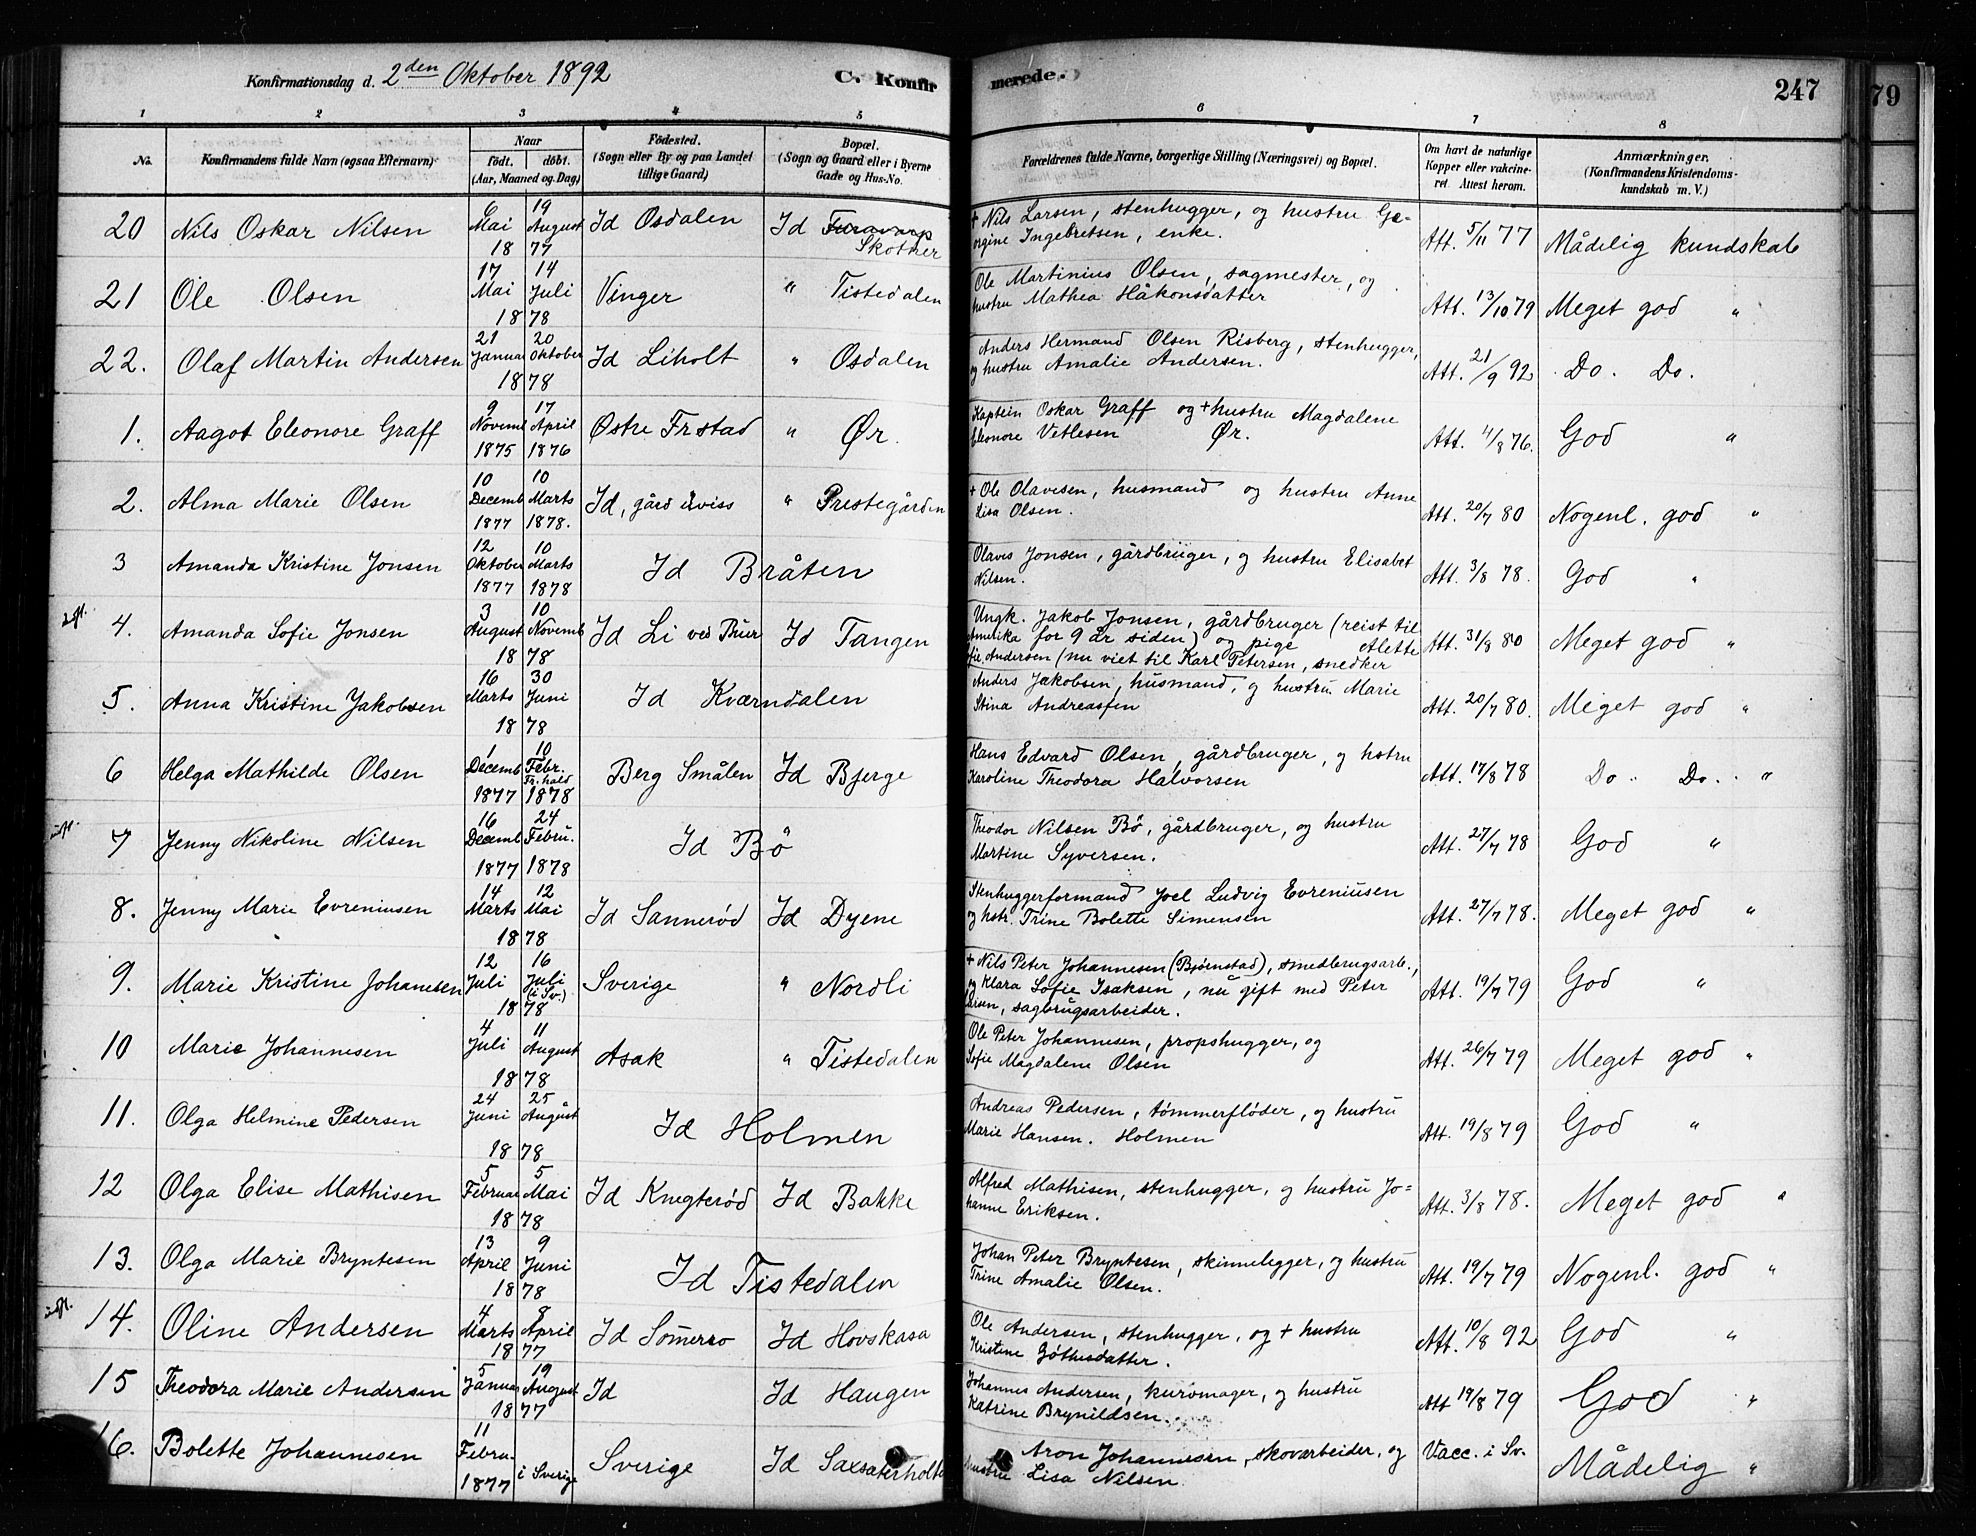 Konfirmationsdag d. 2den Oktober 1892 C. Konfirmerede. 247 79
1 2 3 4 5 6 7 8
No. Konfirmandens fulde Navn (ogsaa Efternavn). Naar født. døbt. (Aar, Maaned og Dag) Fødested. (Sogn eller By og paa Landet tillige Gaard) Bopæl. (Sogn og Gaard eller i Byerne Gade og Hus-No. Forældrenes fulde Navne, borgerlige Stilling (Næringsvei) og Bopæl. Om havt de naturlige Kopper eller vakcineret. Attest herom. Anmærkninger. (Konfirmandens Kristendomskundskab m. V.)
20 Nils Oskar Nilsen 6 Mai 19 August 1877 Id Osdalen Id Skotner + Nils Larsen, stenhugger, og hustru Georgine Ingebretsen, enke. Att. 5/11 77 Mådelig kundskab
21 Ole Olsen 17 Mai 14 Juli 1878 Vinger " Tistedalen Ole Martinius Olsen, sagmester, og hustru Mathea Håkonsdatter Att. 13/10 79 Meget god "
22. Olaf Martin Andersen 21 Januar 20 Oktober 1878 Id Liholt " Osdalen Anders Hermand Olsen Risberg, stenhugger, og hustru Amalie Andersen. Att. 21/9 92 Do. Do.
1. Aagot Eleonore Graff 9 Novemb 1875 17 April 1876 Østre Frstad " Ør. Kaptein Oskar Graff og + hustru Magdalene Eleonore Vetlesen Ør. Att. 4/8 76. God "
2. Alma Marie Olsen 10 Decemb 1877 10 Marts 1878. Id, gård uviss " Prestegården + Ole Olavesen, husmand og hustru Anne Lisa Olsen. Att. 20/7 80 Nogenl. god "
3 Amanda Kristine Jonsen 12 Oktober 1877 10 Marts 1878 Id Bråten Olaves Jonsen, gårdbruger, og hustru Elisabet Nilsen. Att. 3/8 78. God "
4. Amanda Sofie Jonsen 3 August 10 Novemb 1878 Id Li ved Buer Id Tangen Ungk. Jakob Jonsen, gårdbruger (reist til Amerika for 9 år siden) og pige Alette Sofie Andersen (nu viet til Karl Petersen, snedker Att. 31/8 80 Meget god "
5. Anna Kristine Jakobsen 16 Marts 30 Juni 1878 Id Kværndalen Anders Jakobsen, husmand, og hustru Marie Stina Andreassen Att. 20/7 80. Meget god "
6 Helga Mathilde Olsen 1 Decemb 1877 10 Febr. Fr.hald 1878 Berg Smålen Id Bjerge Hans Edvard Olsen, gårdbruger, og hstru Karoline Theodora Halvorsen Att. 17/8 78 Do. Do. "
7 Jenny Nikoline Nilsen 16 Decemb 1877 24 Febru. 1878 Id Bö Theodor Nilsen Bö, gårdbruger, og hustru Martine Syversen. Att. 27/7 78 God "
8. Jenny Marie Evreniusen 14 Marts 12 Mai 1878 Id Sannerød Id Dyene Stenhuggerformand Joel Ludvig Evreniusen og hstr. Trine Bolette Simensen Att. 27/7 78. Meget god "
9. Marie Kristine Johanesen 12 Juli 16 Juli (i Sv.) 1878 Sverige " Nordli + Nils Peter Johannesen (Bjørnstad), smedbrugsarb., og Klara Sofie Isaksen, nu gift med Peter Larsen, sagbrugsarbeider. Att. 19/7 79 God "
10 Marie Johannesen 4 Juli 11 August 1878 Asak " Tistedalen Ole Peter Johannesen, propshugger, og Sofie Magdalene Olsen Att. 26/7 79 Meget god "
11. Olga Helmine Pedersen 24 Juni 25 August 1878 Id Holmen Andreas Pedersen, tømmerfløder, og hustru Marie Hansen. Holmen Att. 19/8 79 God "
12 Olga Elise Mathisen 5 Februar 5 Mai 1878 Id Knegterød Id Bakke Alfred Mathisen, stenhugger, og hustru Johanne Eriksen. Att. 3/8 78. Meget god "
13. Olga Marie Bryntesen 13 April 9 Juni 1878 Id Tistedalen Johan Peter Bryntesen, skinnelegger, og hustru Trine Amalie Olsen. Att. 19/7 79 Nogenl. god "
14. Oline Andersen 4 Marts 8 April 1877 Id Sømerro Id Hovskasa Ole Andersen, stenhugger, og + hustru Kristine Göthesdatter. Att. 10/8 92 God "
15 Theodora Marie Andersen 5 Januar 19 August 1877 Id Id Haugen Johannes Andersen, kurvmager, og hustru Katrine Brynildsen. Att 19/8 79 God "
16. Bolette Johannesen 11 Febru. 1877 i Sverige Sverige Id Saxsaterholte Aron Johannesen, skovarbeider, og hustru Lisa Nilsen Vacc. i Sv. Mådelig "